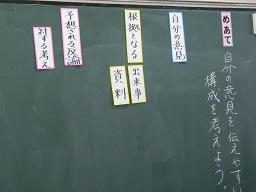 めあて
自分の意見を伝えやすい
構成を考えよう。
自分の意見
根拠となる
出来事
資料
予想される反論
対する考え